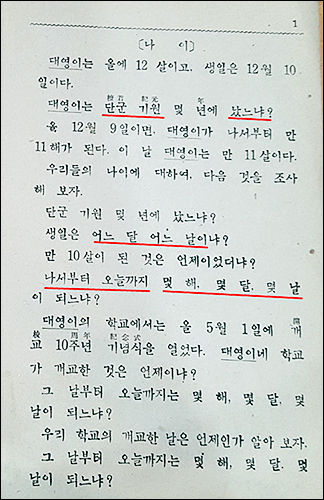 1
〔나 이〕
대영이는 올에 12 살이고, 생일은 12월 10
일이다.
檀君 紀元 年
대영이는 단군 기원 몇 년에 났느냐?
올 12월 9일이면, 대영이가 나서부터 만
11해가 된다. 이 날 대영이는 만 11살이다.
우리들의 나이에 대하여, 다음 것을 조사
해 보자.
단군 기원 몇 년에 났느냐?
생일은 어느 달 어느 날이냐?
만 10살이 된 것은 언제이었더냐?
나서부터 오늘까지 몇 해, 몇 달, 몇 날
이 되느냐?
開
대영이의 학교에서는 올 5월 1일에 개
校 周年 紀念式
교 10주년 기념식을 열었다. 대영이네 학교
가 개교한 것은 언제이냐?
그 날부터 오늘까지는 몇 해, 몇 달, 몇
날이 되느냐?
우리 학교의 개교한 날은 언제인가 알아 보자.
그 날부터 오늘까지는 몇 해, 몇 달. 몇
날이 되느냐?